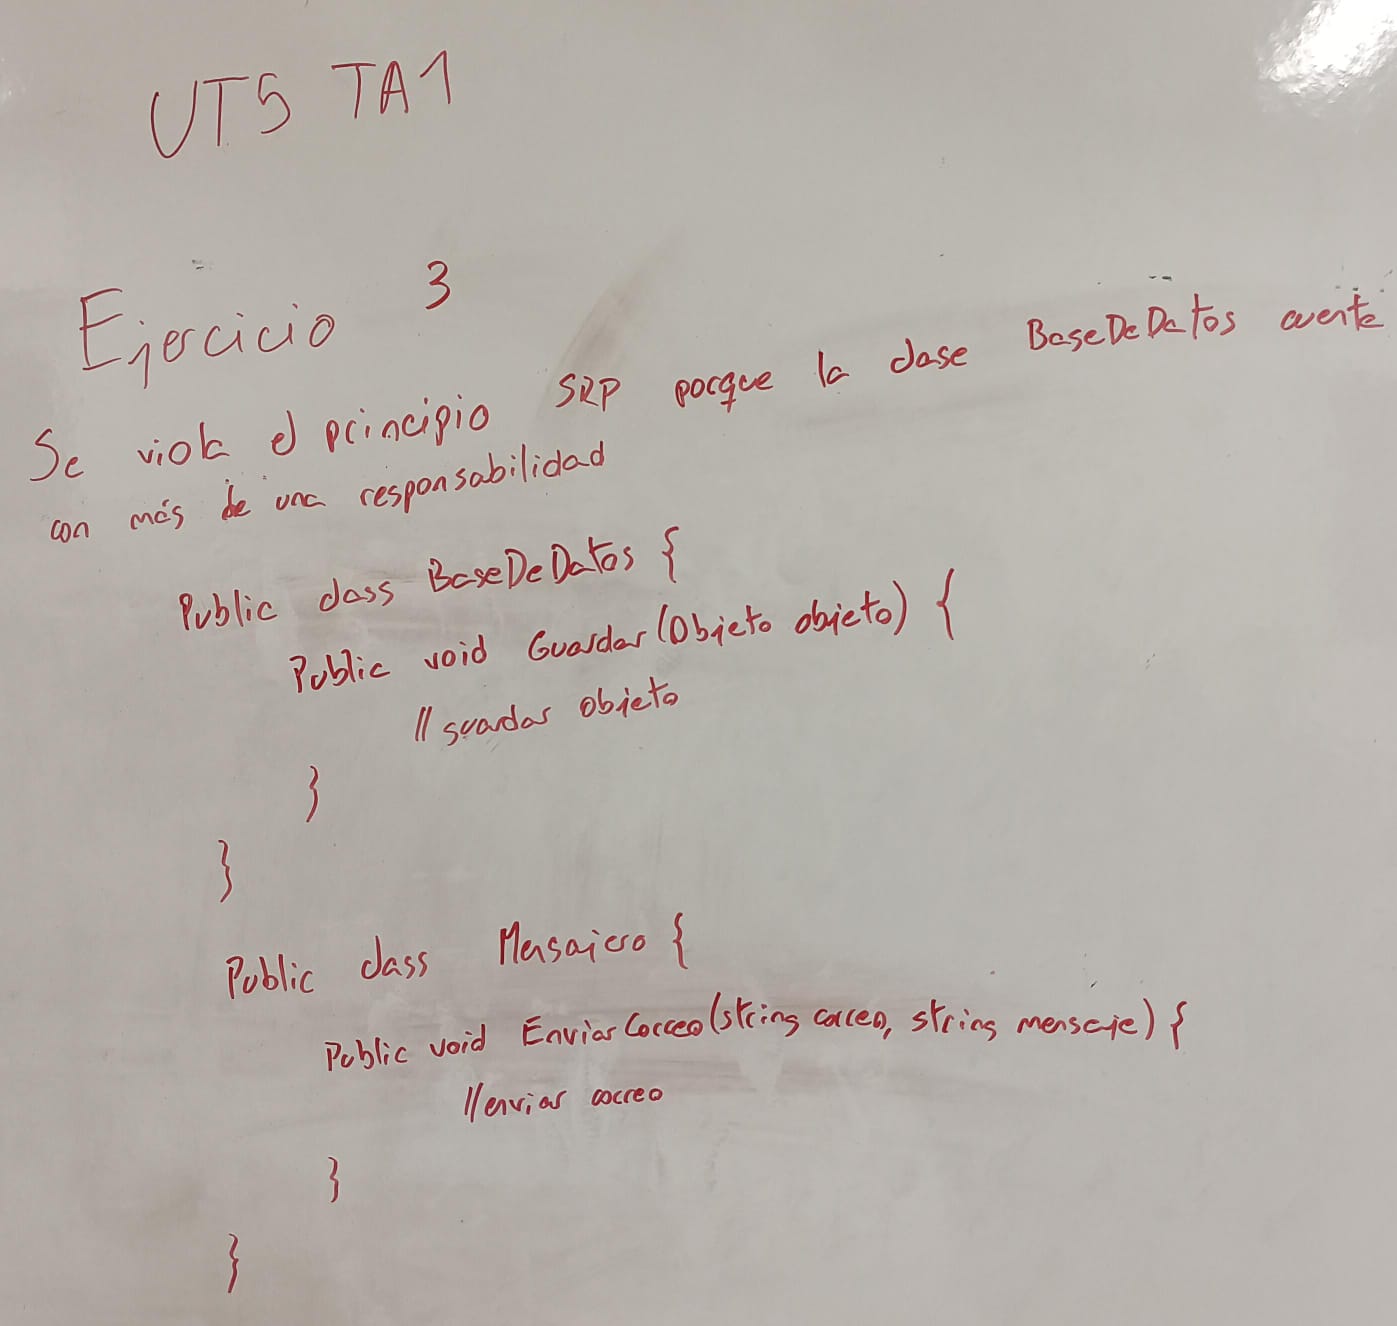 UT5 TA1
Ejercicio 3
Se viola el principio SRP porque la clase BaseDeDatos cuenta
con más de una responsabilidad
Public class BaseDeDatos {
Public void Guardar(Objeto objeto) {
// guardar objeto
}
}
Public class Mensajero {
Public void EnviarCorreo(string correo, string mensaje) {
//enviar correo
}
}